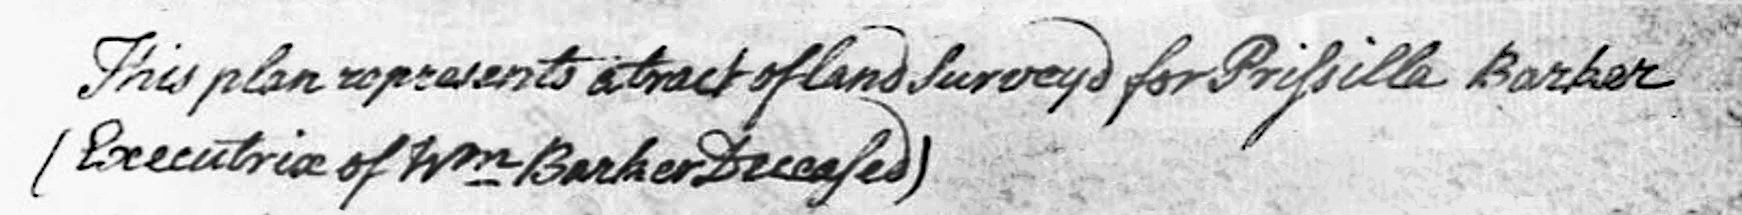 This plan represents a tract of land Surveyd for Prissilla Barker
(Executrix of Wm Barker Deceased)